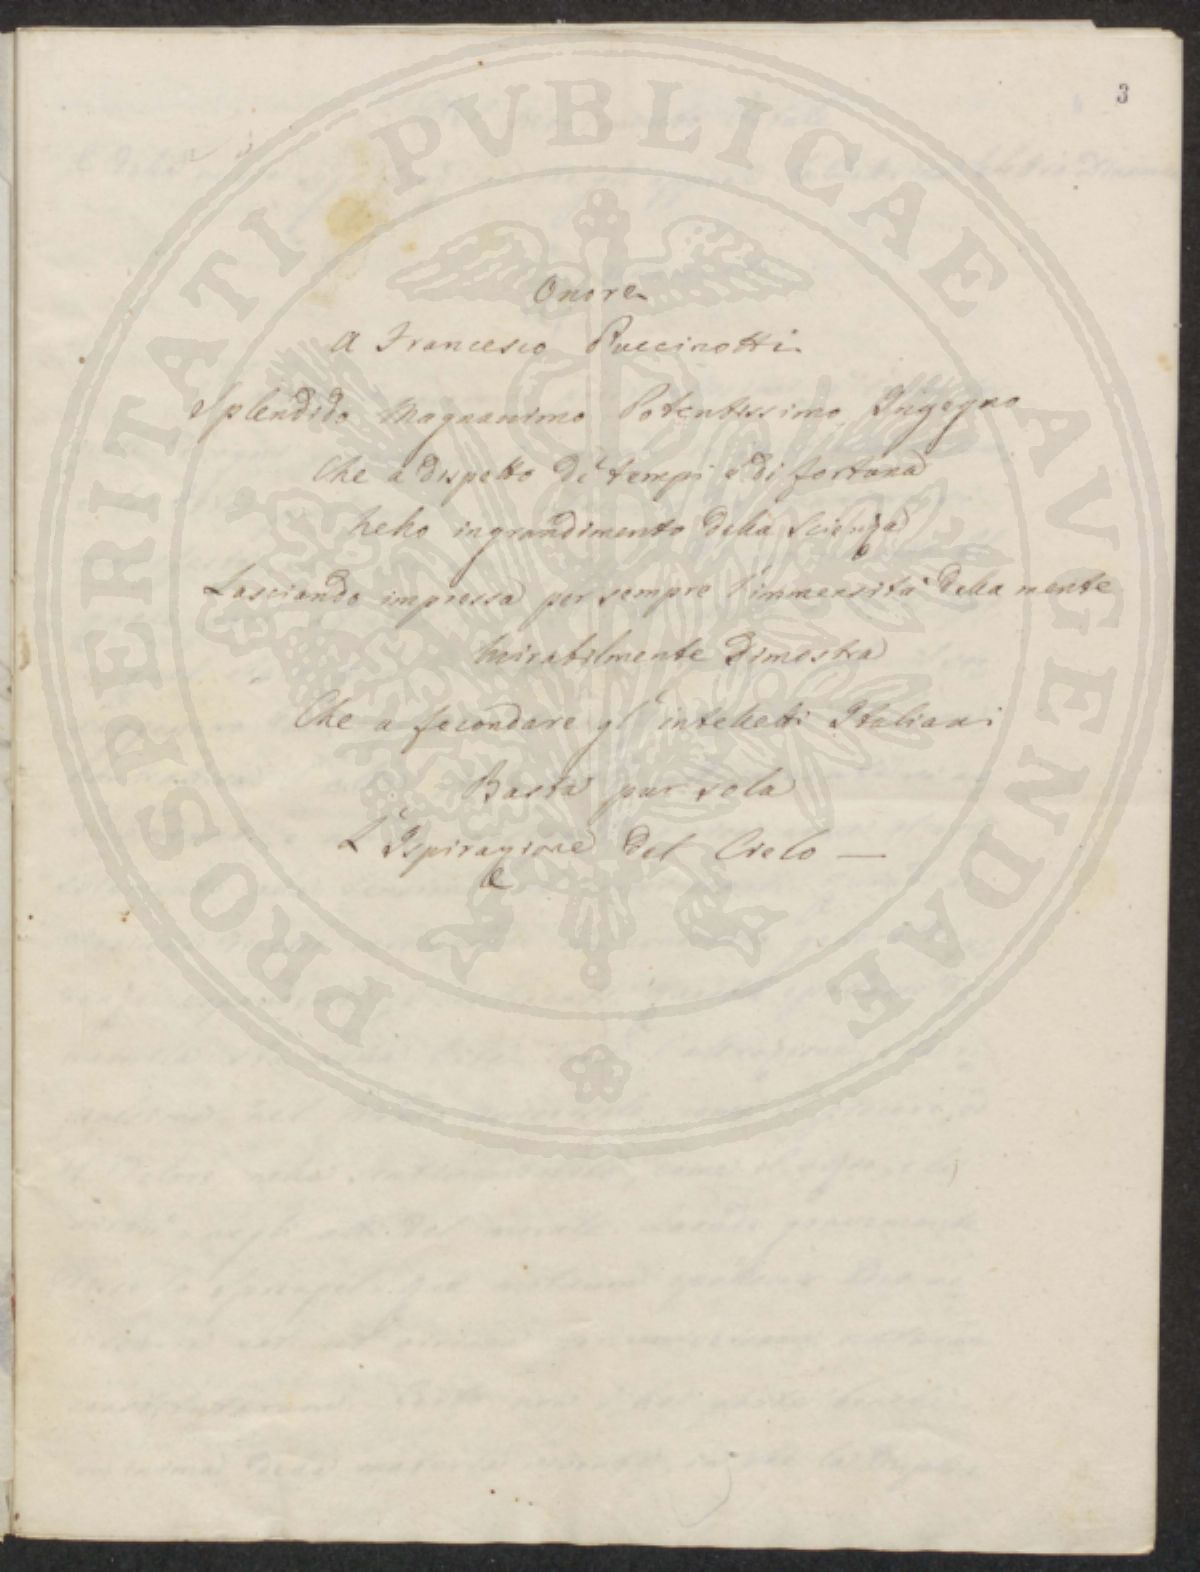 3
PROSPERITATI PUBLICAE AUGENDAE
Onore
A Francesco Puccinotti
Splendido Magnanimo Potentissimo Ingegno
Che a dispetto de' tempi e di fortuna
Nello ingrandimento della Scienza
Lasciando impressa per sempre l'immensità della mente
Mirabilmente dimostra
Che a fecondare gl'intelletti Italiani
Basta pur sola
L'Ispirazione del Cielo —